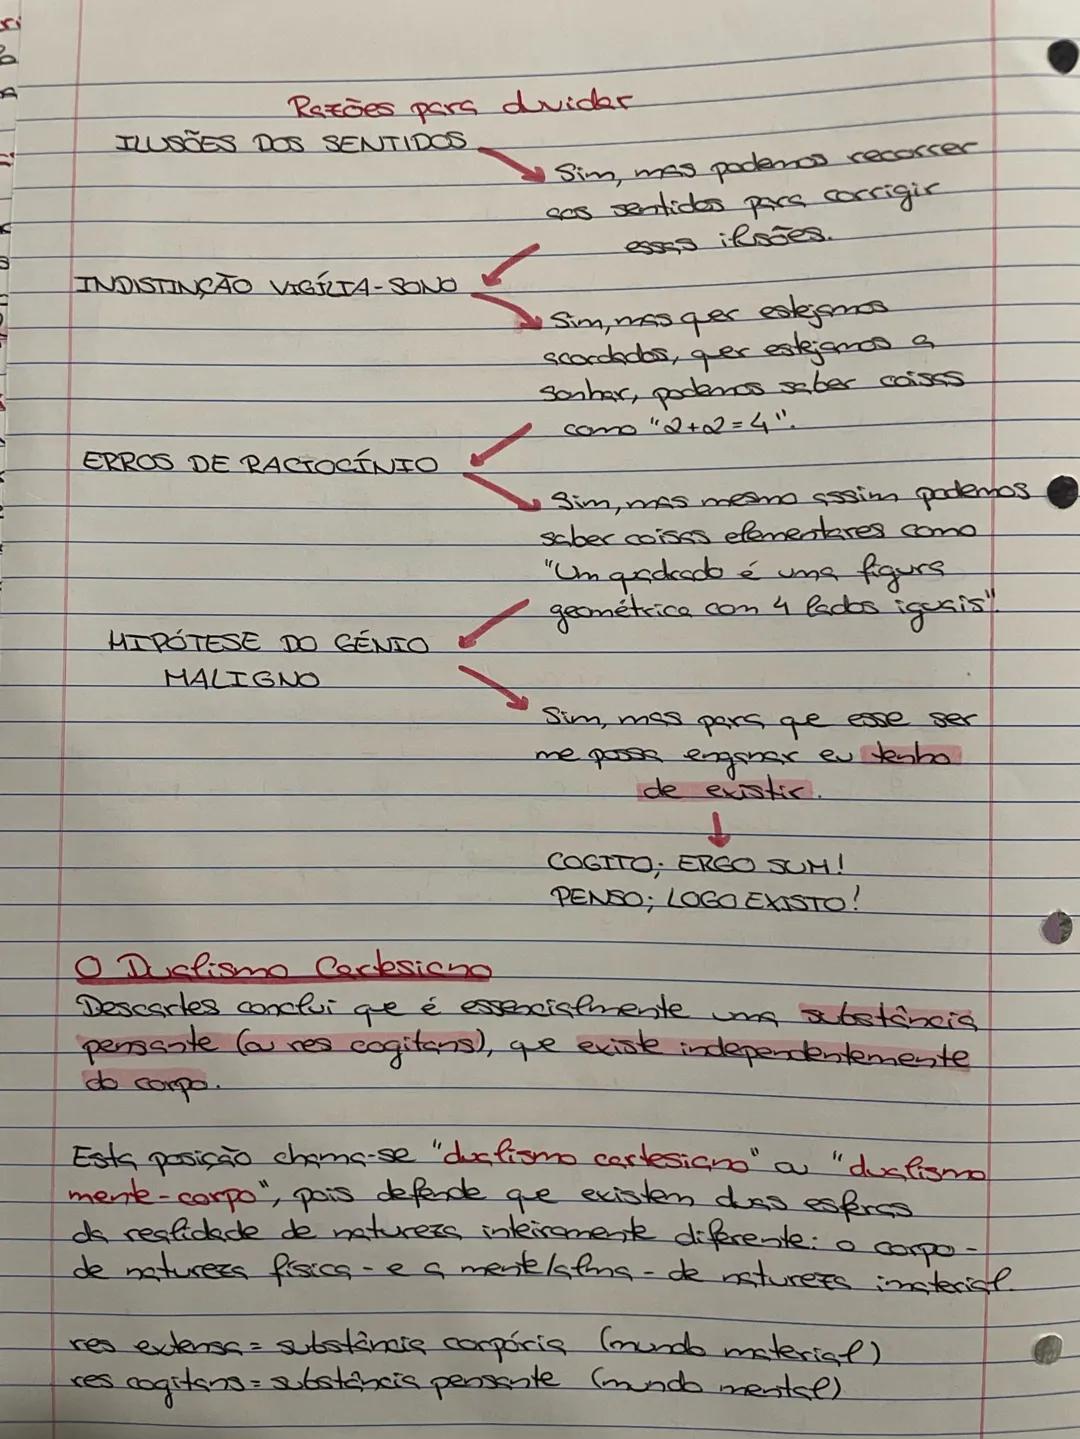 Razões para duvidar
ILUSÕES DOS SENTIDOS
Sim, mas podemos recorrer
aos sentidos para corrigir
essas ilusões.
INDISTINÇÃO VIGÍLIA-SONO
Sim, mas quer estejamos
acordados, quer estejamos a
sonhar, podemos saber coisas
como "2+2=4".
ERROS DE RACIOCÍNIO
Sim, mas mesmo assim podemos
saber coisas elementares como
"Um quadrado é uma figura
geométrica com 4 lados iguais".
HIPÓTESE DO GÉNIO
MALIGNO
Sim, mas para que esse ser
me possa enganar eu tenho
de existir.
COGITO; ERGO SUM!
PENSO; LOGO EXISTO!
O Dualismo Cartesiano
Descartes conclui que é essencialmente uma substância
pensante (ou res cogitans), que existe independentemente
do corpo.
Esta posição chama-se "dualismo cartesiano" ou "dualismo
mente-corpo", pois defende que existem duas esferas
da realidade de natureza inteiramente diferente: o corpo -
de natureza física - e a mente/alma - de natureza imaterial.
res extensa = substância corpória (mundo material)
res cogitans = substância pensante (mundo mental)